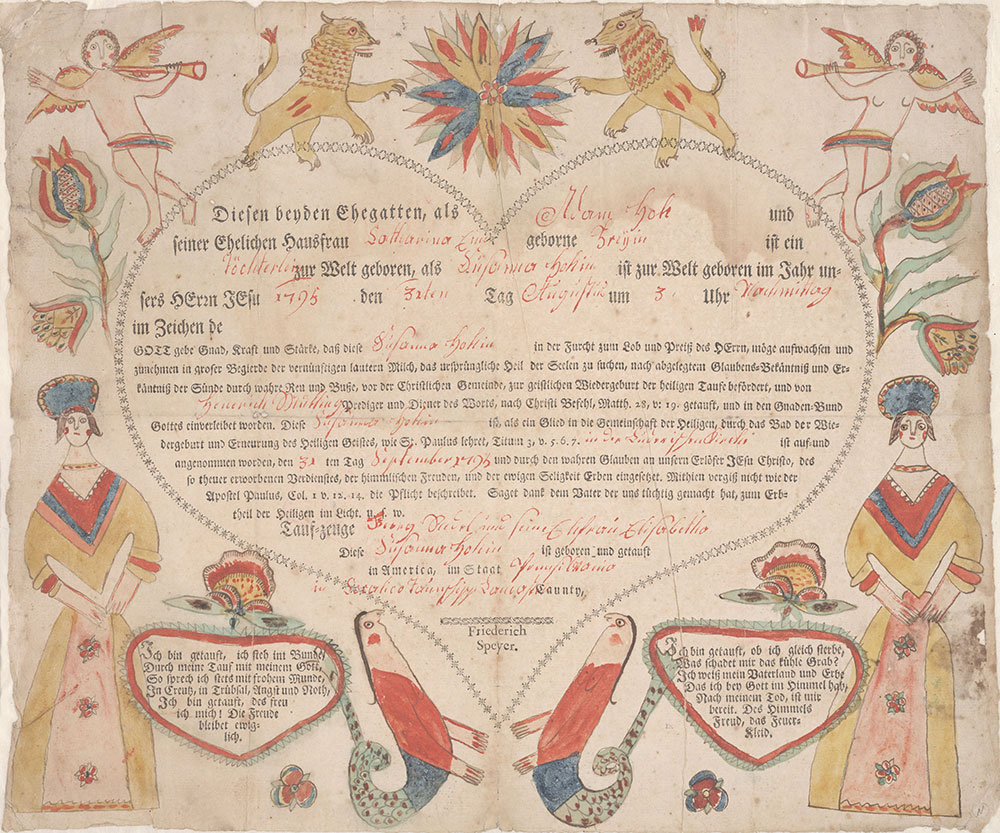 Diesen beyden Ehegatten, als Adam Holt und
seiner Ehelichen Hausfrau Catharina geborne Freyin ist ein
Töchterlein zur Welt geboren, als Susanna Holtin ist zur Welt geboren im Jahr un-
sers HErrn JEsu 1795 den 3ten Tag Augustus um 3 Uhr Nachmittag
im Zeichen de
GOTT gebe Gnad, Kraft und Stärke, daß diese Susanna Holtin in der Furcht zum Lob und Preiß des HErrn, möge aufwachsen und
zunehmen in groser Begierde der vernünftigen lautern Milch, das ursprüngliche Heil der Seelen zu suchen, nach abgelegtem Glaubens-Bekäntniß und Er-
käntniß der Sünde durch wahre Reu und Buße, vor der Christlichen Gemeinde, zur geistlichen Wiedergeburt der heiligen Taufe befördert, und von
Henerich Prediger und Diener des Worts, nach Christi Befehl, Matth. 28, v: 19. getauft, und in den Gnaden-Bund
Gottes einverleibet worden. Diese Susanna Holtin ist, als ein Glied in die Gemeinschaft der Heiligen, durch das Bad der Wie-
dergeburt und Erneurung des Heiligen Geistes, wie St. Paulus lehret, Titum 3, v. 5. 6. 7. in der ist auf-und
angenommen worden, den 31 ten Tag September 1795 und durch den wahren Glauben an unsern Erlöser JEsu Christo, des
so theuer erworbenen Verdienstes, der himmlischen Freuden, und der ewigen Seligkeit Erben eingesetzt. Mithien vergiß nicht wie der
Apostel Paulus, Col. 1 v. 12. 14. die Pflicht beschreibet. Saget dank dem Vater der uns tüchtig gemacht hat, zum Erb-
theil der Heiligen im Licht. u. s. w.
Tauf-zeuge Georg und seine Ehfrau Elisabetha
Diese Susanna Holtin ist geboren und getauft
in America, im Staat
in Cocalico Caunty,
Friederich
Speyer.
Ich bin getauft, ich steh im Bunde,
Durch meine Tauf mit meinem Gott,
So sprech ich stets mit frohem Munde,
In Creutz, in Trübsal, Angst und Noth,
Ich bin getauft, des freu
ich mich! Die Freude
bleibet ewig-
lich.
Ich bin getauft, ob ich gleich sterbe,
Was schadet mir das kühle Grab?
Ich weiß mein Vaterland und Erbe
Das ich bey Gott im Himmel hab,
Nach meinem Tod, ist mir
bereit. Des Himmels
Freud, das Feuer-
Kleid.